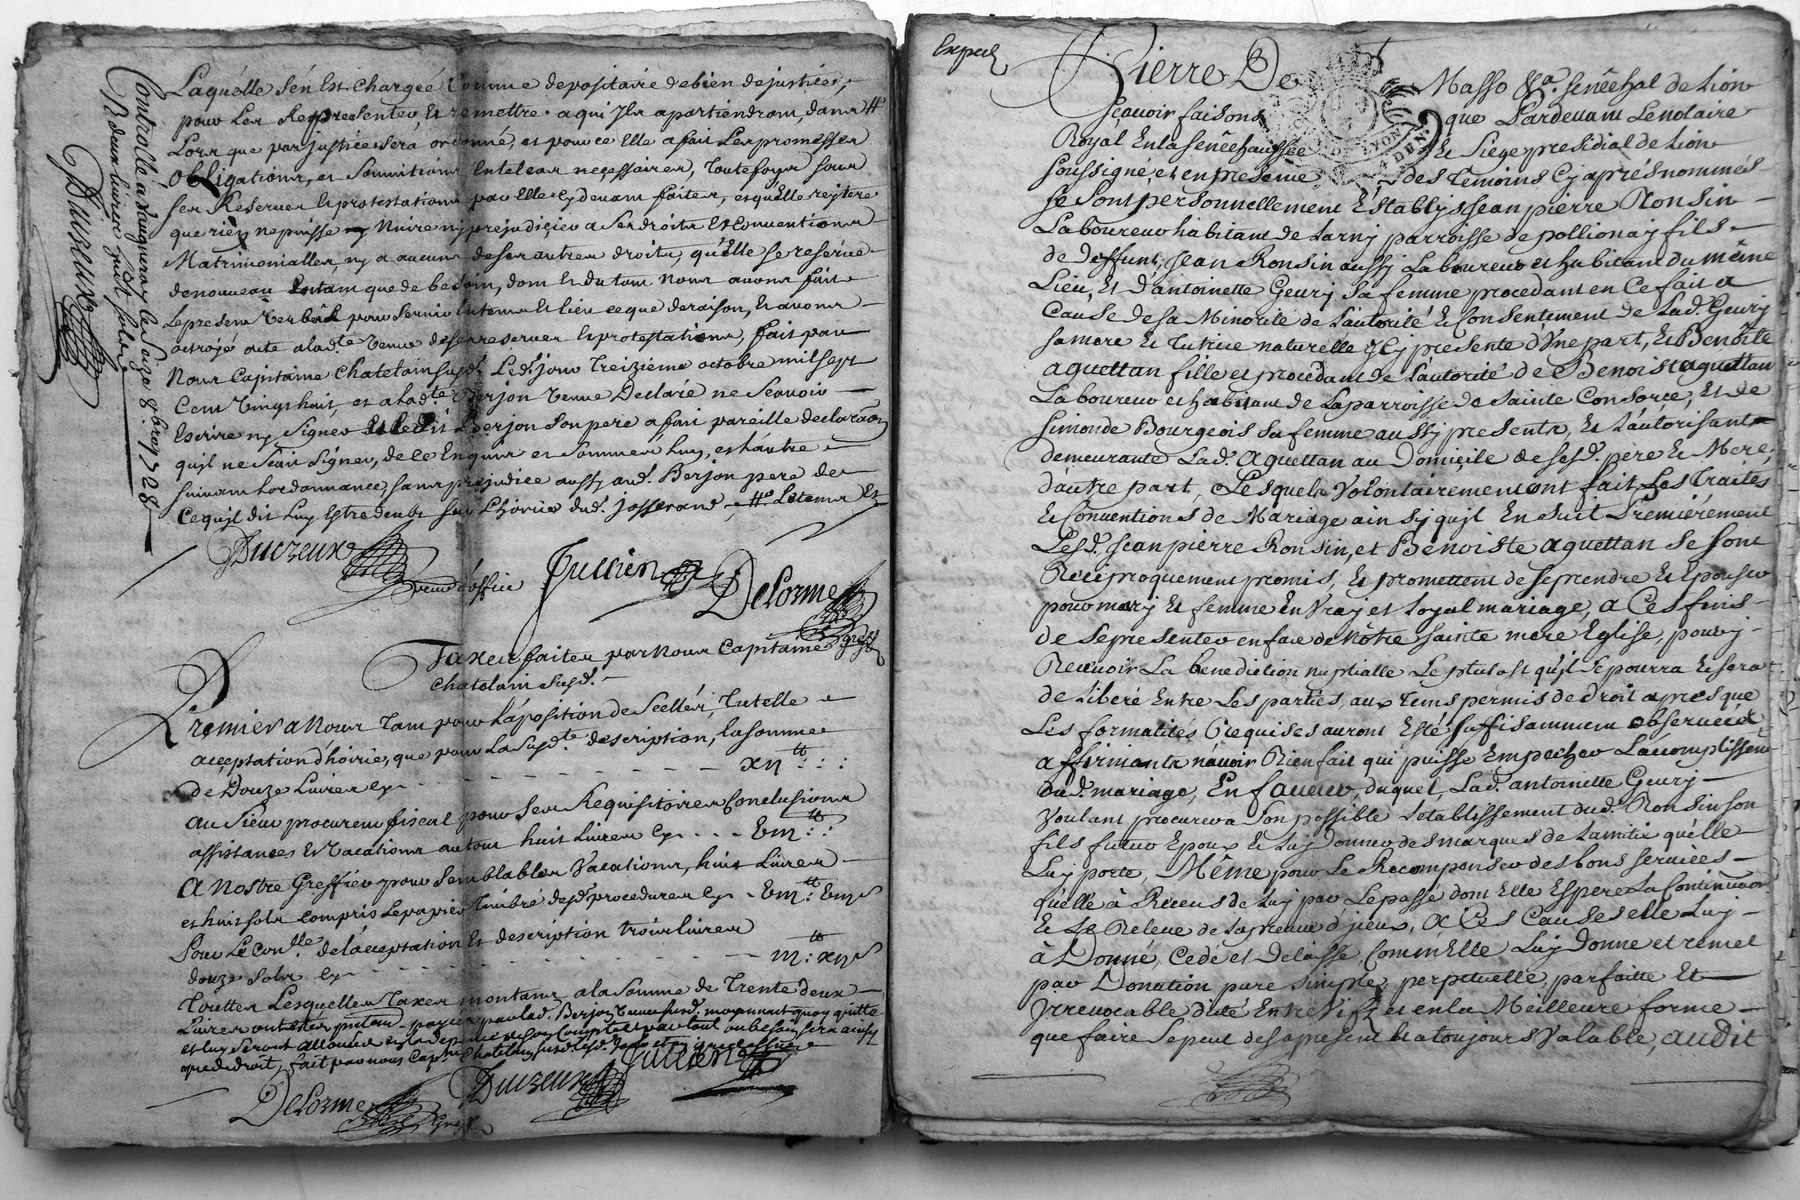 Laquélle sén Est Chargeé Comme depositaire debien dejustice,
pour Les Representer, Et remettre aqui Ils apartiendront, dans #
Lors que par justice sera ordonné, et pource Elle afait Les promesses
obligations, et Soumitions Entel cas necessaires, Toutefoys sous
ses Reserves Et protestations par elle cy devant faites, et quelle reytere
que rien nepuisse ny Nuire ny prejudicier a ses droits Et Conventions
Matrimonialles, ny a aucuns deses autres droits, qu'elle se reserve
denouveau Entant que de besoin, dont Et du tout Nous avons fait
Lepresent Verbal pour servir Entems Et lieu ce que deraison, Et avons
octroyé acte alad.te Veuve deses reserves Et protestations, fait par
Nous Capitaine Chatelain susd. Led. jour Treiziéme octobre mil sept
Cens Vingt huit, et alad.te Berjon Veuve Declaré ne Scavoir
Escrire ny Signer Et Ledit Berjon son pere afait pareille declaraon
quil ne Scait Signer, de ce Enquis et Sommés Luy, et Lautre
suivant Lordonnance, sans prejudice aussy aud. Berjon pere de
Cequil dit Luy Estre deub sur Lhoirie dud. josserand # Letems Et
Ducreux
preur d'office
Jullien
Delorme
greff
Controllé a Vaugneray le Seize 8bre 1728
R deux livres huit sols
Ducreux
Taxes faites par Nous Capitaine
Chatelain Susd.
Premier a Nous Tant pour L'aposition de Scellés, Tutelle
acceptation d'hoirie, que pour La Susd.te description, la somme
de Douze Livres Cy - - - - - - xıı tt : : :
au Sieur procureur fiscal pour Ses Requisitoires Conclusions
assistances Et Vacations autour huit Livres Cy - - - Vııı tt : :
A Nostre Greffier pour Semblables Vacations, huit Livres
et huit sols Compris Le papier Timbré desd. procedures Cy - Vııı tt : Vııı s
Pour Le Con.lle de lacceptation Et description trois Livres
douze sols Cy - - - - - - ııı tt : xıı s
Touttes Lesquelles Taxes montant a la Somme de Trente deux
Livres ont esté
que de droit, fait par nous Cap.ne Chatelain susd.
Delorme
Greff
Ducreux
Jullien
Exped
Pierre De Masso &a. Senêchal de Lion
Scavoir faisons que Pardevant Le notaire
Royal En la Senêchaussée Et Siege presidial de Lion
soussigné, et en presence des Temoins Cy aprés nommés
se sont personnellement Establys Jean pierre Ronsin
Laboureur habitant de Larny parroisse de pollionay fils
de Deffunt, Jean Ronsin aussy Laboureur et habitant du même
Lieu, Et D'antoinette Geury Sa femme procedant en Ce fait a
Cause de sa Minorité de L'autorité Et Consentement de Lad. Geury
sa mere Et Tutrice naturelle Icy presente d'Vne part, Et Benoîte
aquettan fille et procédant de L'autorité de Benoist aquettan
Laboureur et habitant de La parroisse de Sainte Consorce, Et de
Simonde Bourgeois Sa femme aussy presents, Et L'autorisants
demeurante Lad. aquettan au Domicile de sesd. pere Et Mere,
d'autre part, Lesquels Volontairement ont fait Les Traités
Et Conventions de Mariage ainsy quil En suit Premiérement
Lesd. Jean pierre Ronsin, et Benoiste aquettan Se sont
Reciproquement promis, Et promettent de se prendre Et Epouser
pour mary Et femme En Vray et Loyal mariage, a Ces fins
de Se presenter en face de Nôtre Sainte mere Eglise, pour y
Recevoir La benediction nuptialle Le plutost qu'il Se pourra Et sera
de Liberé Entre Les parties, aux Tems permis de droit apres que
Les formalités Requises auront Esté Suffisamment observeés
affirmants n'avoir Rien fait qui puisse Empecher L'acomplissemt
dud. mariage, En faveur duquel, Lad. antoinette Geury
Voulant procurer a Son possible L'etablissement dud. Ronsin son
fils futur Epoux Et Luy Donner des marques de Lamitié quelle
Luy porte, Même pour Le Recompenser des bons services
quelle à Receus de Luy par Le passé dont Elle Espere La Continuaon
Et Le Releve de La preuve d'jceux, a Ces Causes elle Luy
à Donné, Cedé et Delaisse, Comm'elle Luy Donne et remet
par Donation pure Simple, perpetuelle, parfaitte Et
Yrrevocable ditte Entre Vifs et en la Meilleure forme
que faire Se peut des a present Et a toujours Valable, audit